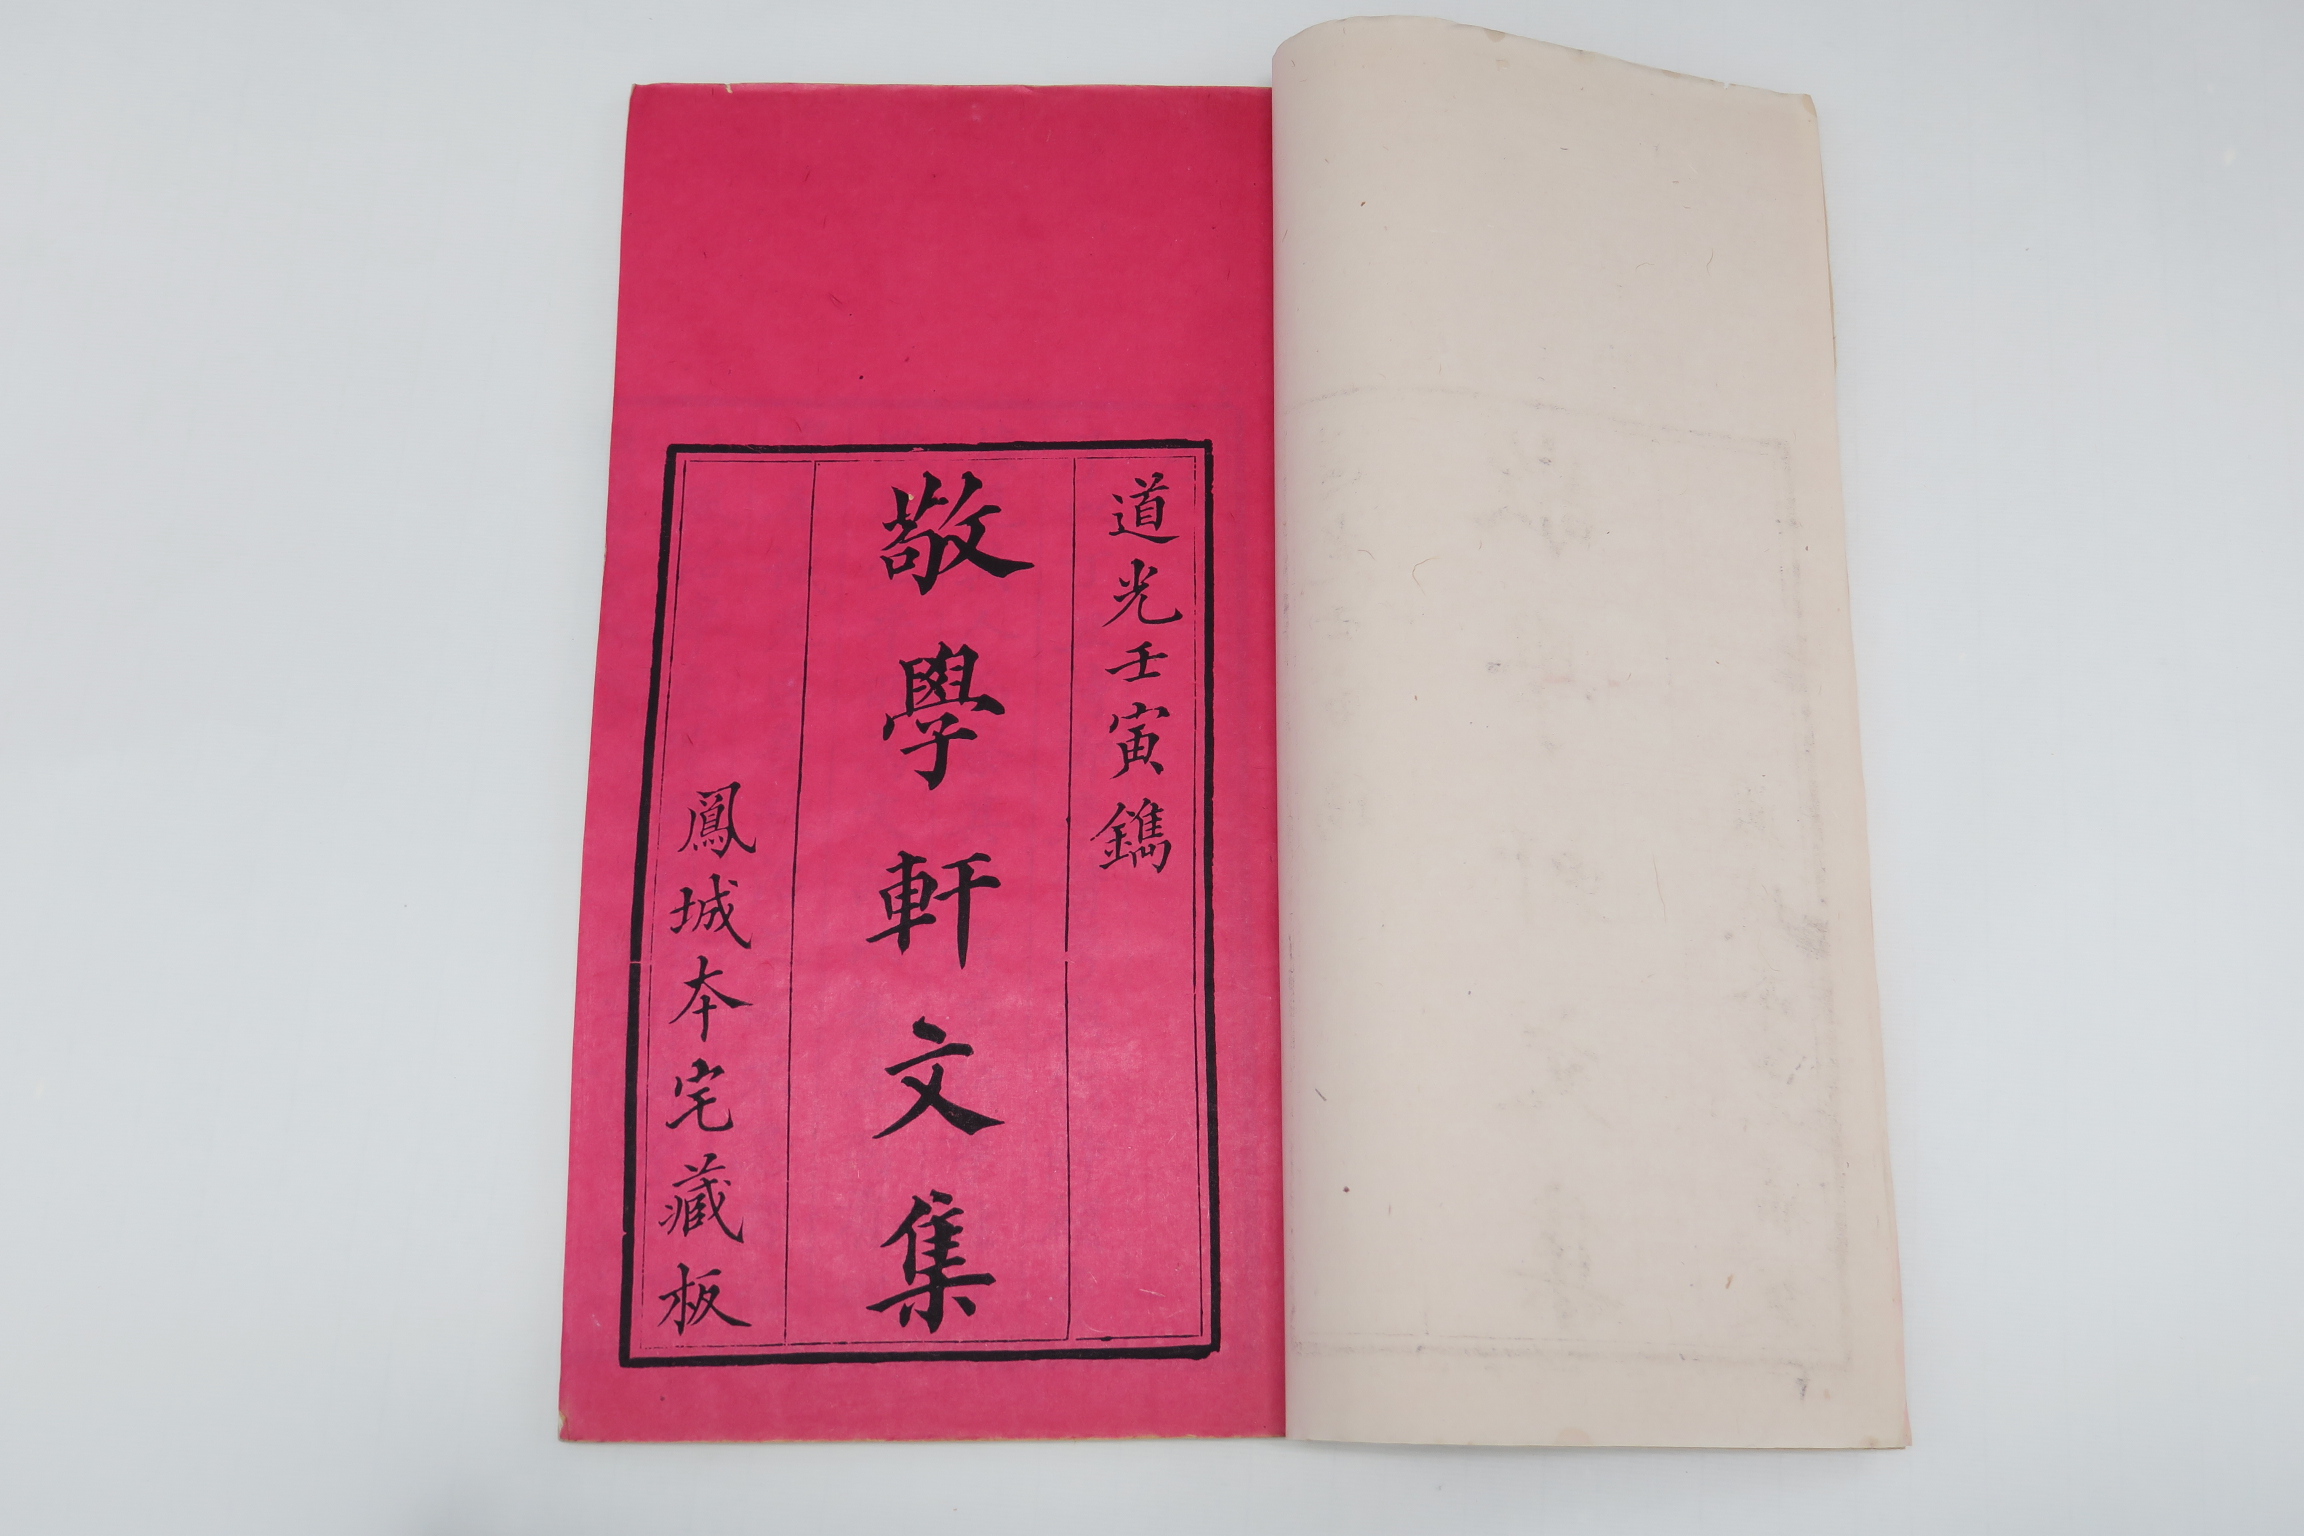 道光壬寅鐫
敬學軒文集
鳳城本宅藏板